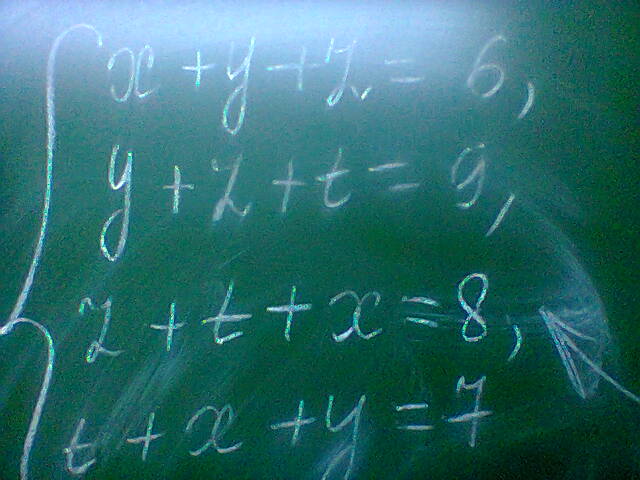 x + y + z = 6,
y + z + t = 9,
z + t + x = 8,
t + x + y = 7